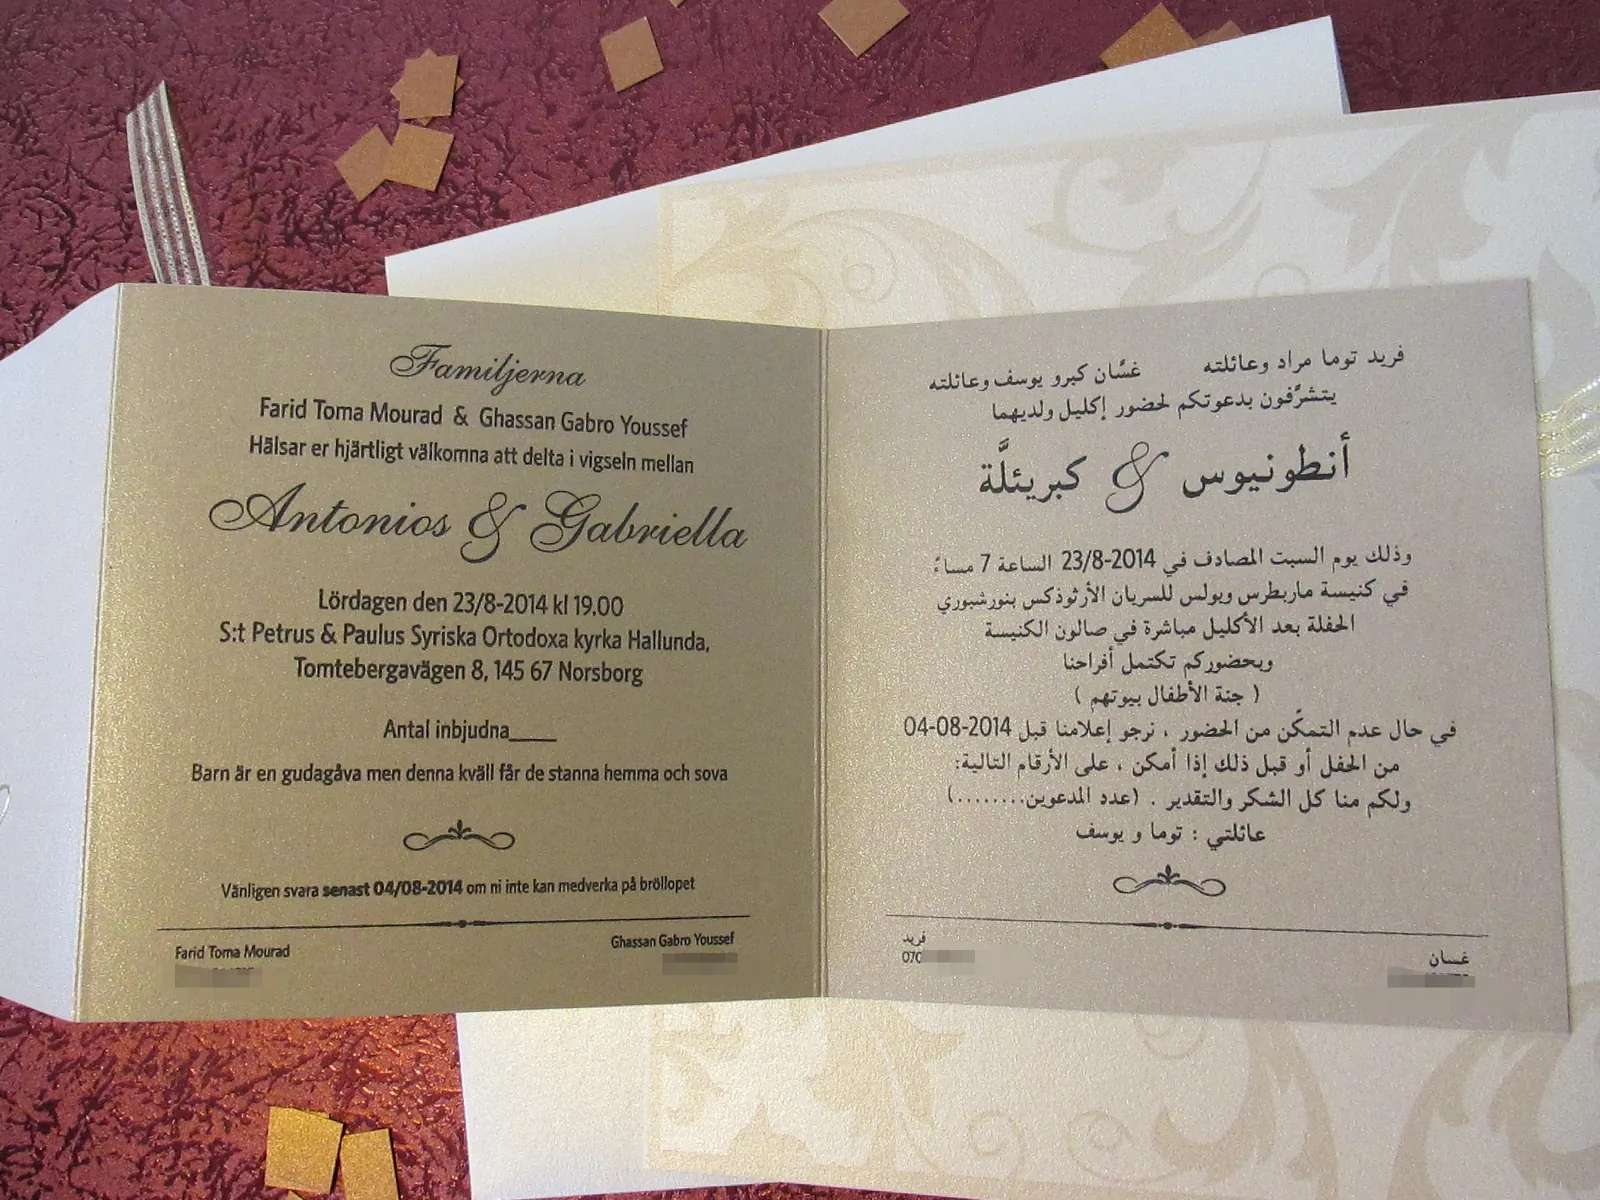 Familjerna
Farid Toma Mourad & Ghassan Gabro Youssef
Hälsar er hjärtligt välkomna att delta i vigseln mellan
Antonios & Gabriella
Lördagen den 23/8-2014 kl 19.00
S:t Petrus & Paulus Syriska Ortodoxa kyrka Hallunda,
Tomtebergavägen 8, 145 67 Norsborg
Antal inbjudna____
Barn är en gudagåva men denna kväll får de stanna hemma och sova
Vänligen svara senast 04/08-2014 om ni inte kan medverka på bröllopet
Farid Toma Mourad
Ghassan Gabro Youssef
فريد توما مراد وعائلته غسَّان كبرو يوسف وعائلته
يتشرَّفون بدعوتكم لحضور إكليل ولديهما
أنطونيوس & كبريئلَّة
وذلك يوم السبت المصادف في 2014-23/8 الساعة 7 مساءً
في كنيسة ماربطرس وبولس للسريان الأرثوذكس بنورشبوري
الحفلة بعد الأكليل مباشرة في صالون الكنيسة
وبحضوركم تكتمل أفراحنا
( جنة الأطفال بيوتهم )
في حال عدم التمكّن من الحضور ، نرجو إعلامنا قبل 2014-08-04
من الحفل أو قبل ذلك إذا أمكن ، على الأرقام التالية:
ولكم منا كل الشكر والتقدير . (عدد المدعوين........)
عائلتي : توما و يوسف
فريد
070
غسان